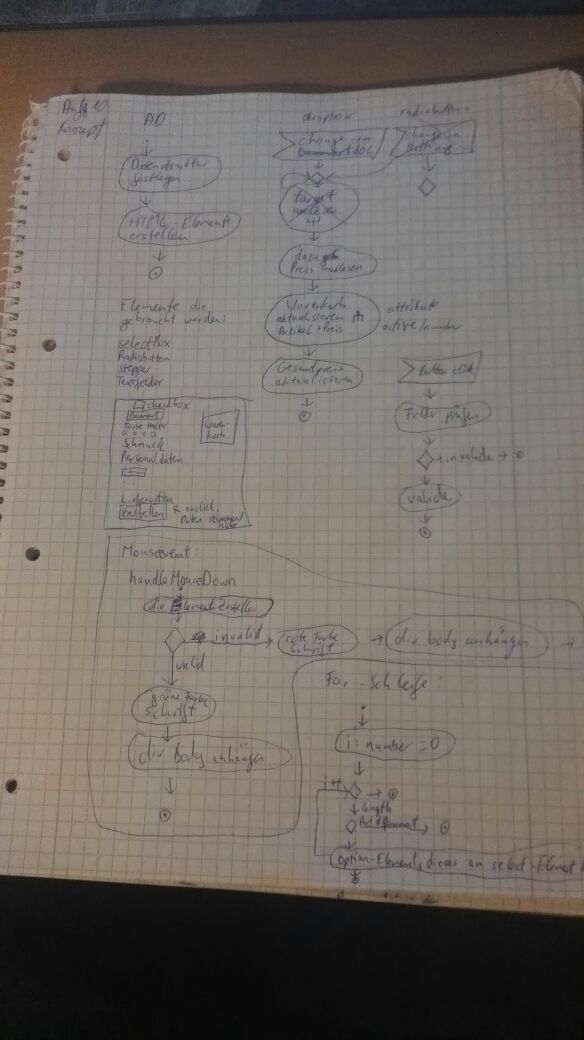 Aufg 10
Konzept
AD
Datenstruktur
festlegen
HTML-Elemente
erstellen
Elemente die
gebraucht werden:
selectbox
Radiobutton
Stepper
Textfelder
checkbox
Halter
Schmuck
Personaldaten
...
Lieferoption
bestellen
onclick,
Daten stimmen/
nicht
Waren-
korb
dropbox
change in
target
auslesen
dazu geh
Preis auslesen
Warenkorb
aktualisieren
Artikel + Preis
attribute
active/number
Gesamtpreis
aktualisieren
radiobuttons
change in
Button click
Felder prüfen
invalide
valide
Mouseevent:
handleMouseDown
div Element erstellen
invalid
rote Farbe
Schrift
div body anhängen
valid
grüne Farbe
Schrift
div body anhängen
For-Schleife:
i: number = 0
i++
length
Option-Element, dieses an select-Element